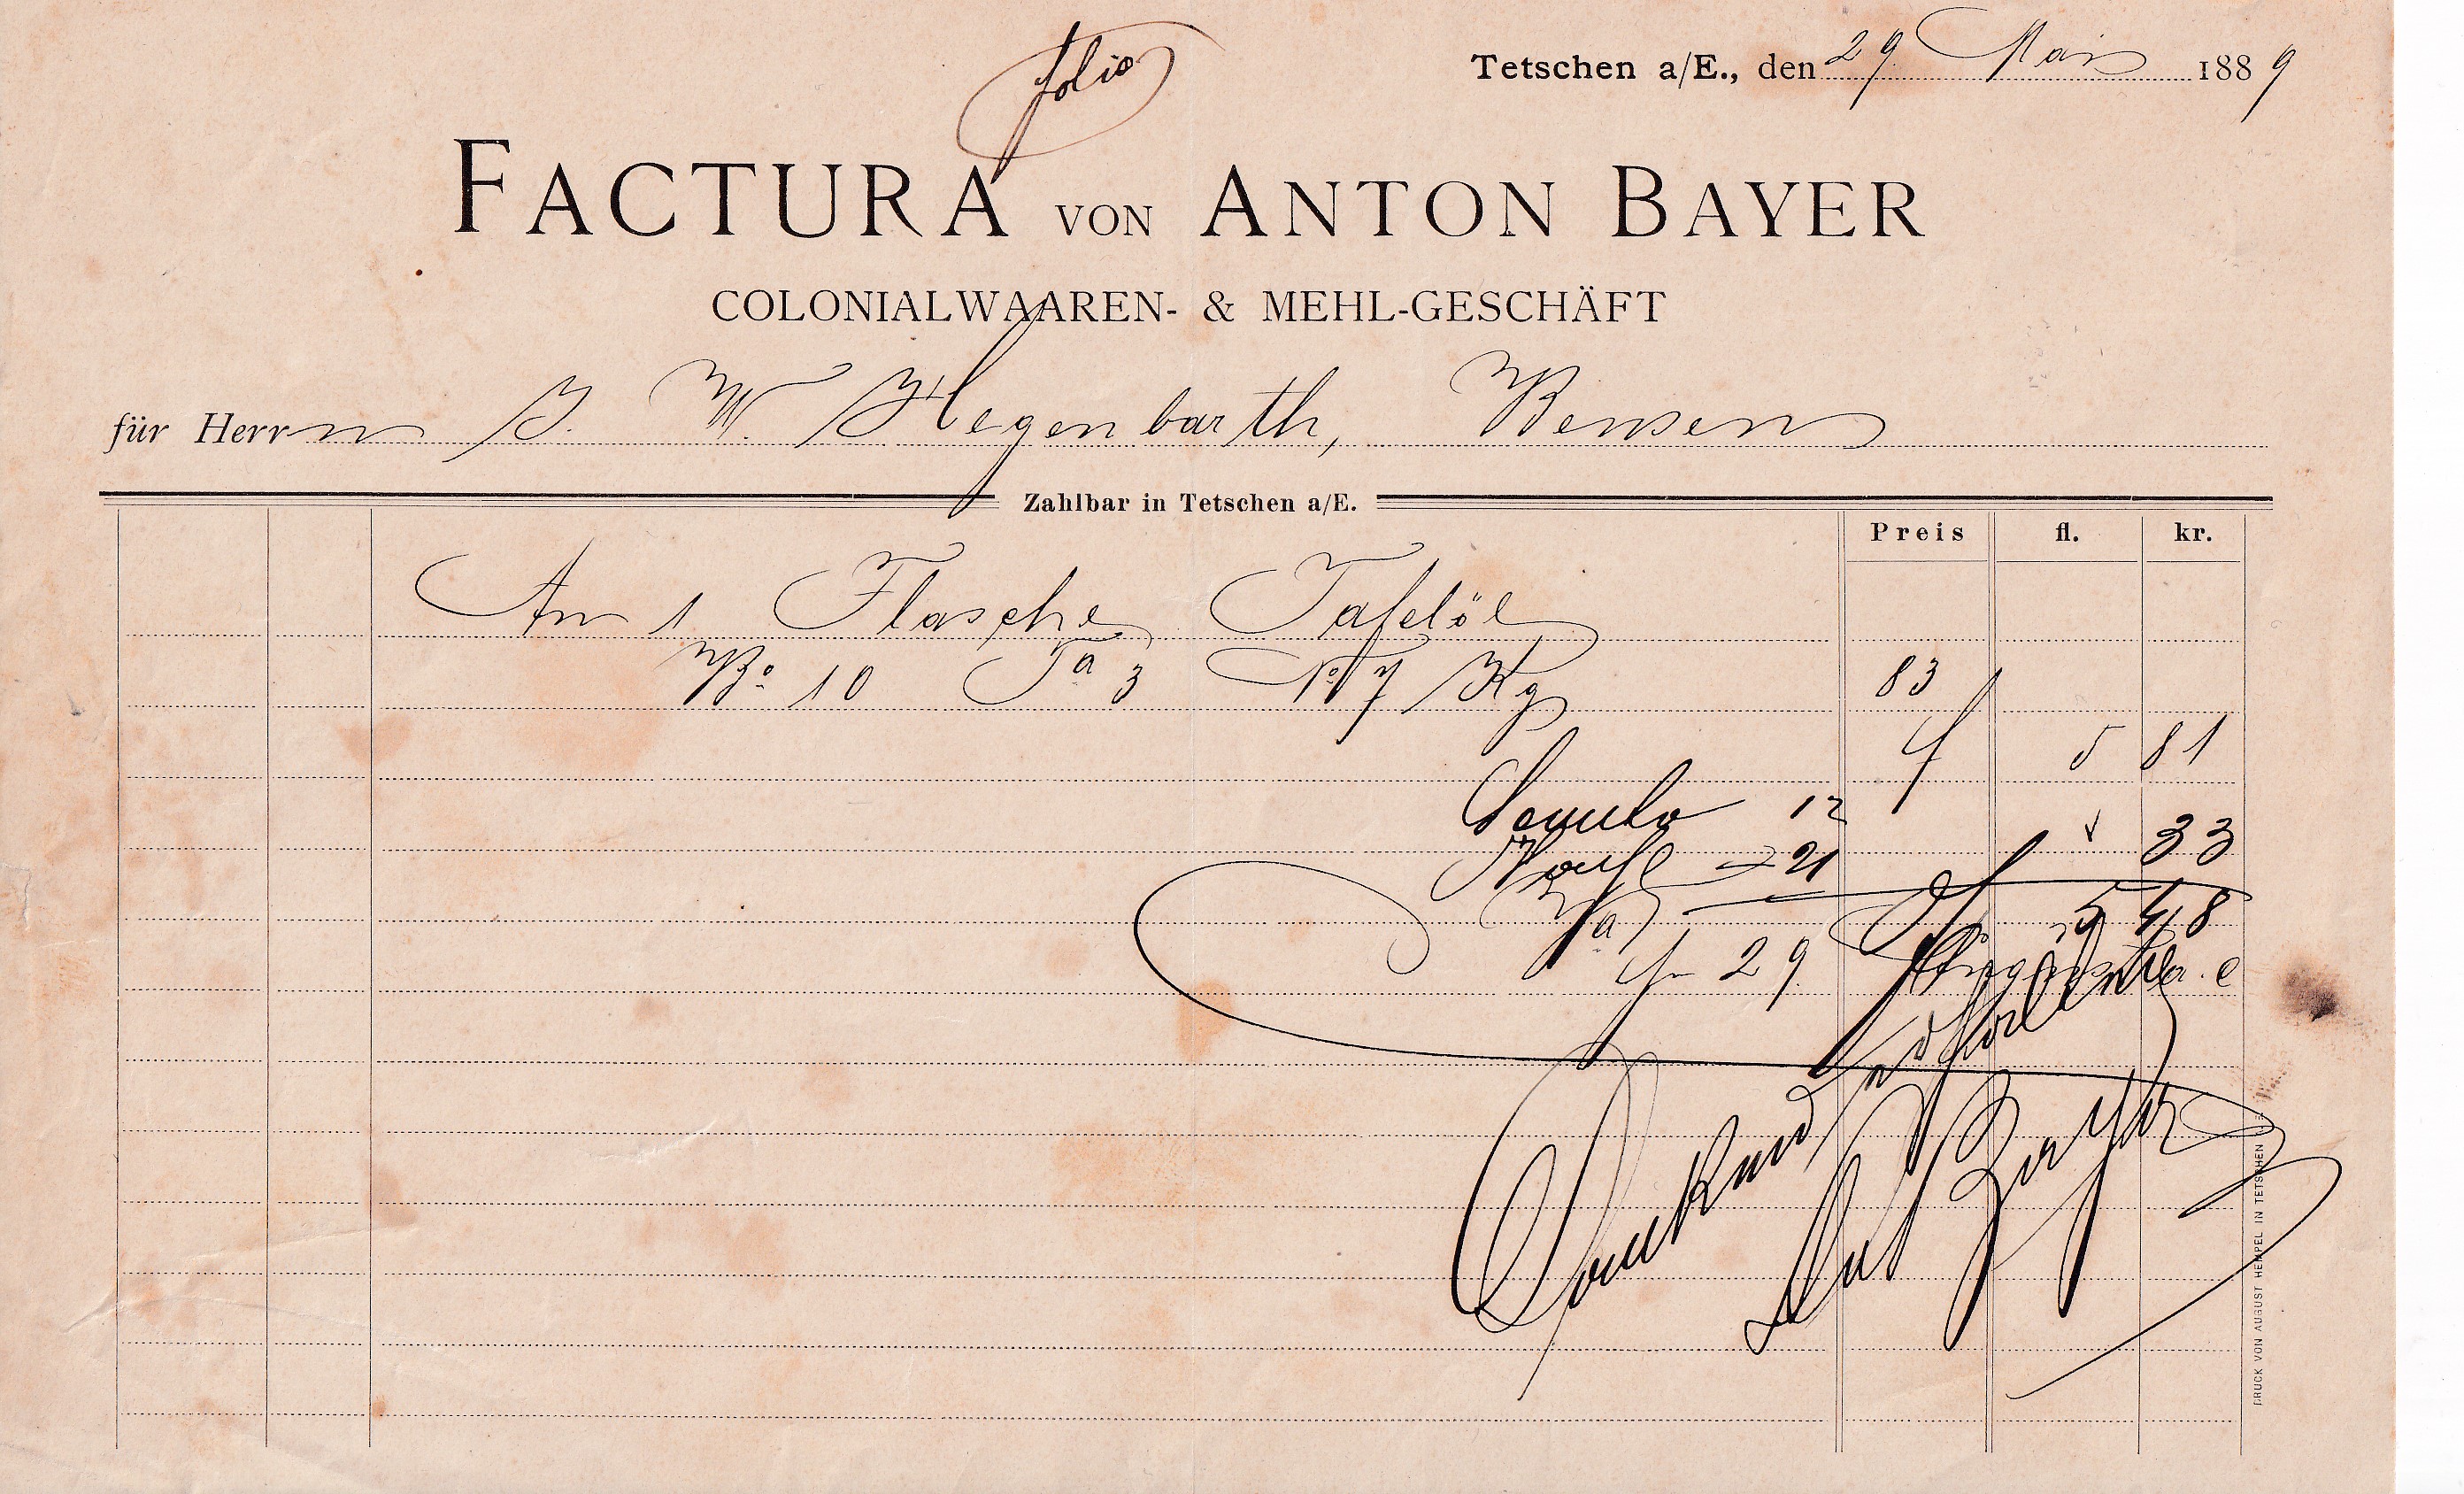 folio
Tetschen a/E., den 29 Mai 1889
FACTURA VON ANTON BAYER
COLONIALWAAREN- & MEHL-GESCHÄFT
für Herrn J. W. Hegenbarth, Bensen
Zahlbar in Tetschen a/E.
Preis fl. kr.
An 1 Flasche Tafelöl
Bo. 10 Ta 3 No 7 Kg 83
f 5 81
12 33
21
5 48
29.
Dankend
Ant Bayer
DRUCK VON AUGUST HEMPEL IN TETSCHEN